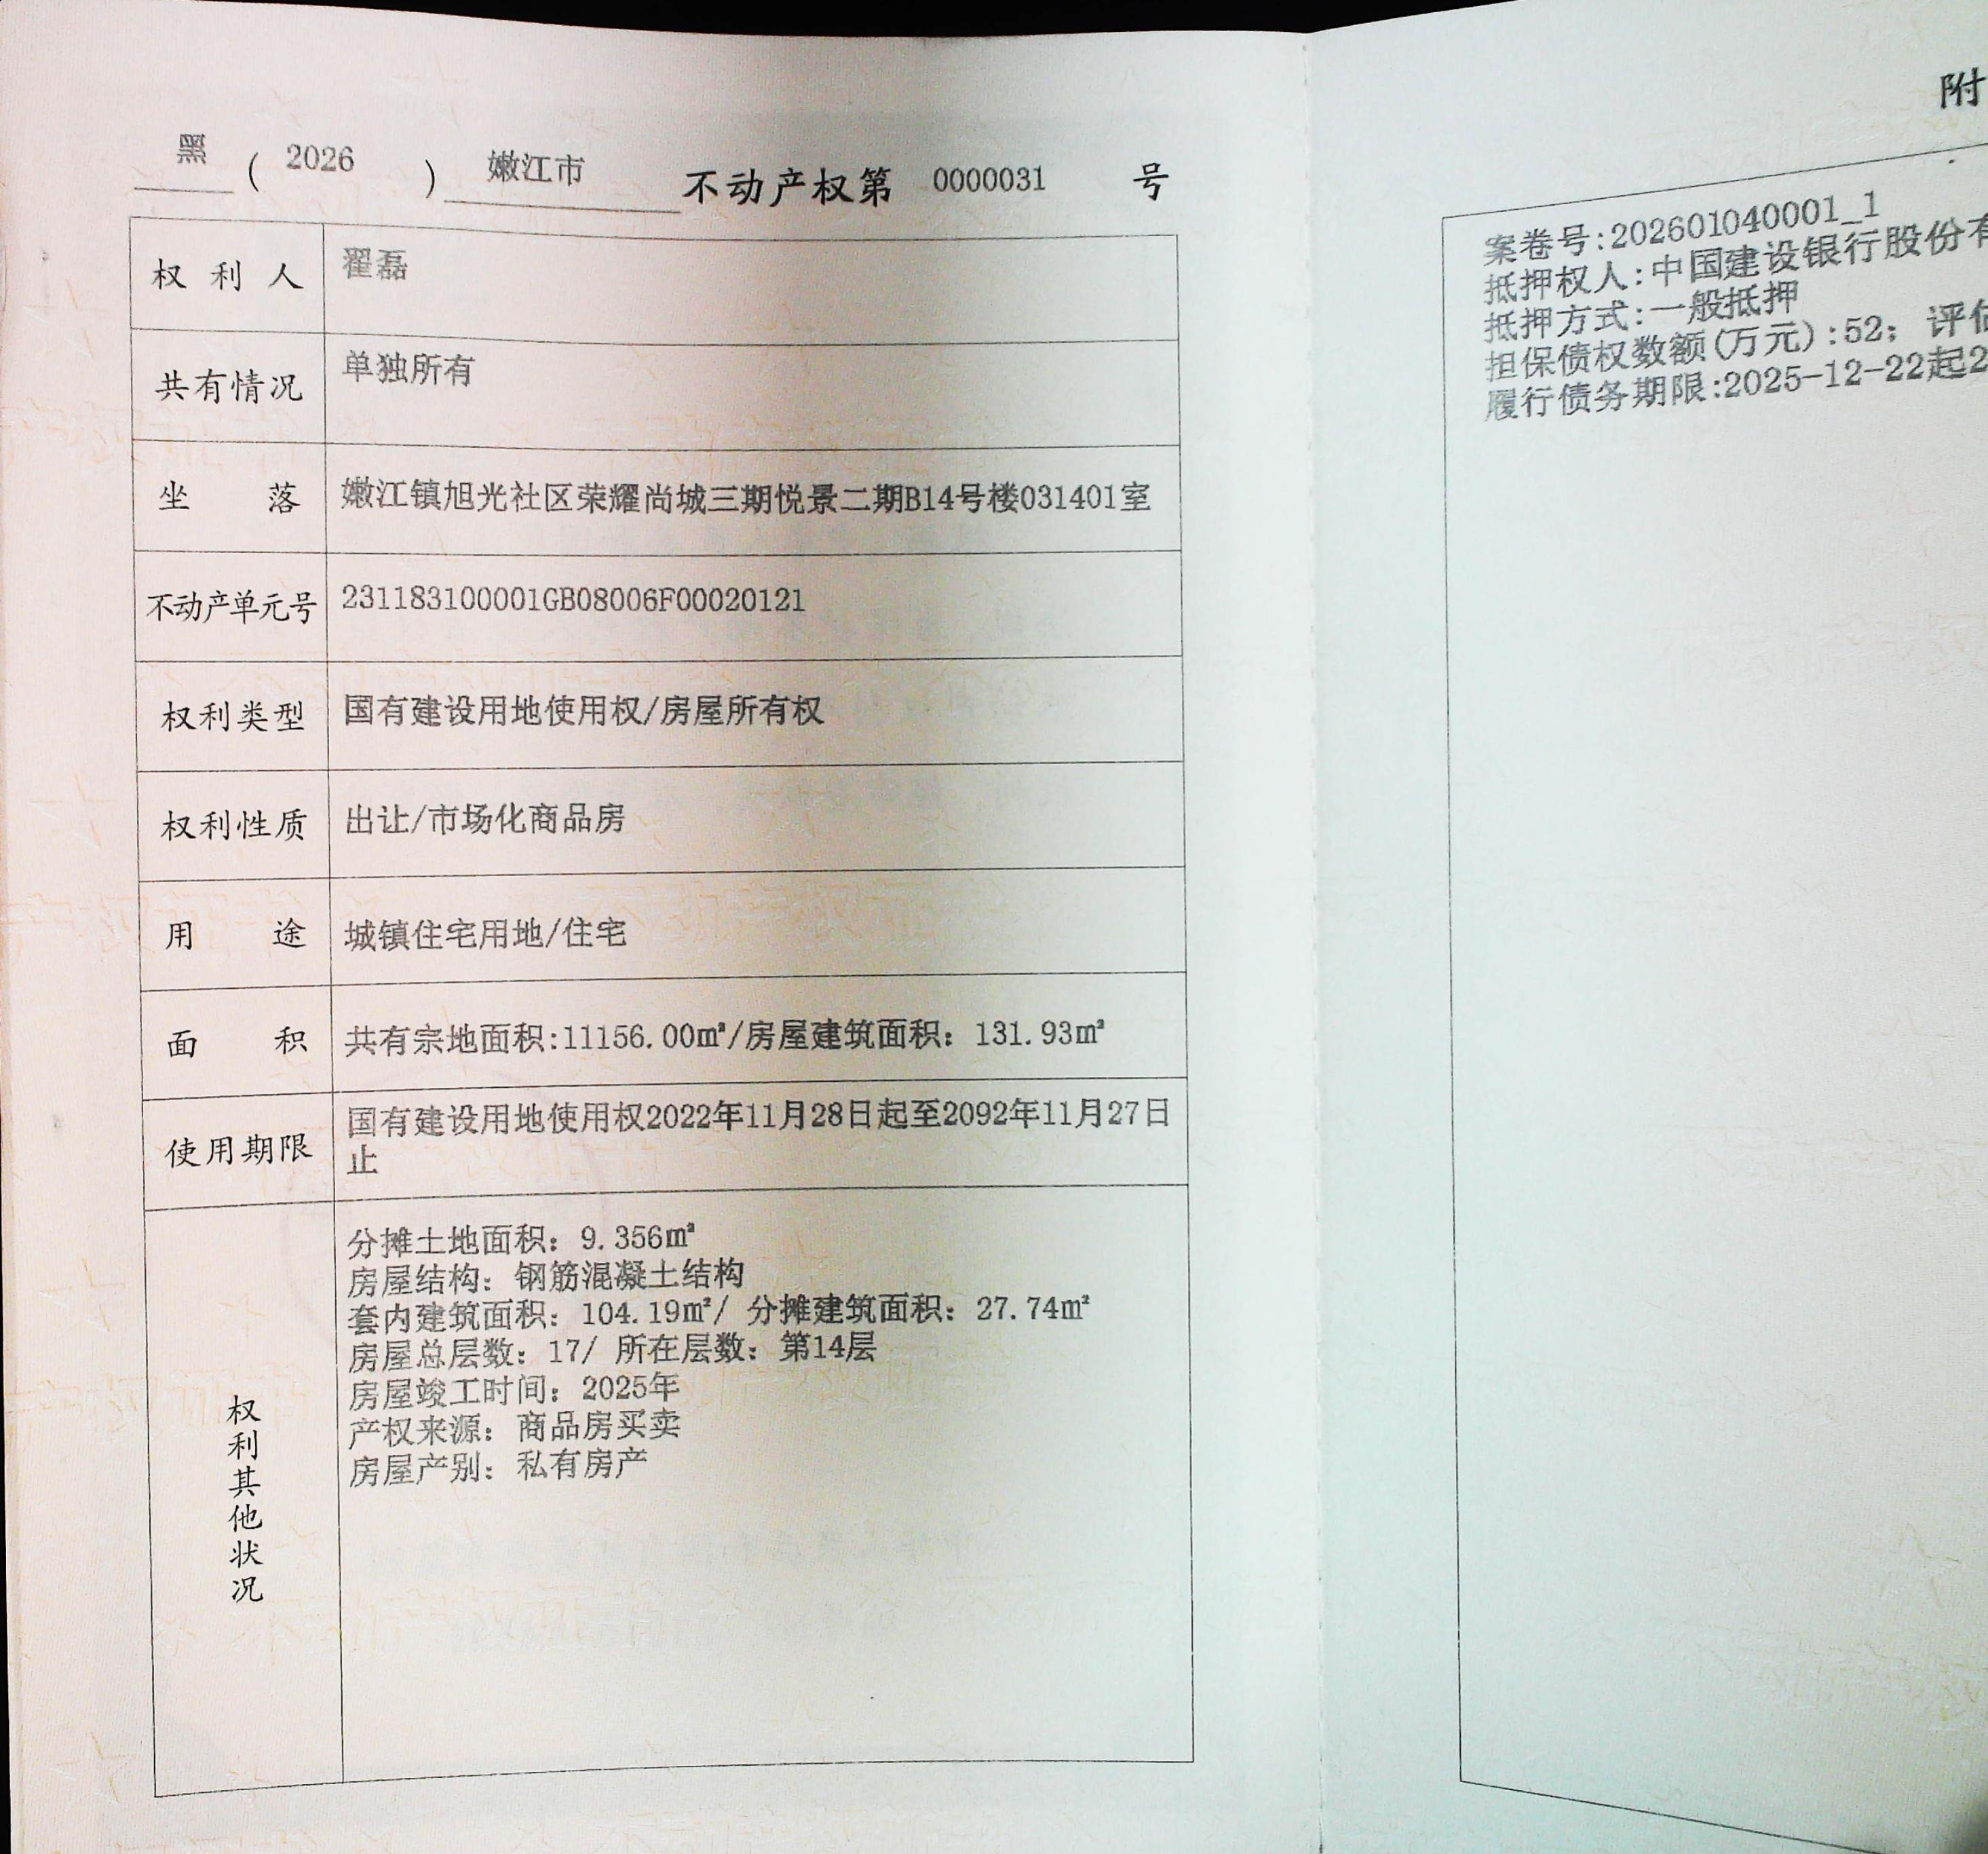 黑（2026）嫩江市不动产权第 0000031 号
权利人 翟磊
共有情况 单独所有
坐落 嫩江镇旭光社区荣耀尚城三期悦景二期B14号楼031401室
不动产单元号 231183100001GB08006F00020121
权利类型 国有建设用地使用权/房屋所有权
权利性质 出让/市场化商品房
用途 城镇住宅用地/住宅
面积 共有宗地面积:11156.00㎡/房屋建筑面积：131.93㎡
使用期限 国有建设用地使用权2022年11月28日起至2092年11月27日
止
权利其他状况
分摊土地面积：9.356㎡
房屋结构：钢筋混凝土结构
套内建筑面积：104.19㎡/ 分摊建筑面积：27.74㎡
房屋总层数：17/ 所在层数：第14层
房屋竣工时间：2025年
产权来源：商品房买卖
房屋产别：私有房产
附
案卷号:202601040001_1
抵押权人:中国建设银行股份有
抵押方式:一般抵押
担保债权数额(万元):52；评估
履行债务期限:2025-12-22起2